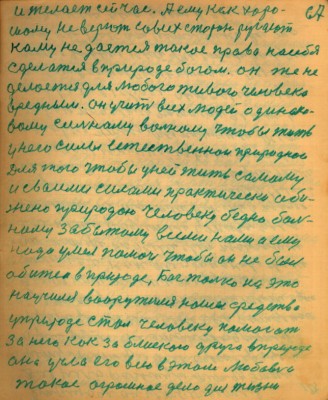 и желает сейчас. Я ему как хоро-
шому не верют со всех сторон ругают
кому не дается такое права на себя
сделатся в природе богом. он же не
делается для любого живого человека
вредным. Он учит всех людей одинако-
вому сильному вольному чтобы жить
у него силы естественной природной
для того чтобы у ней жить самому
и своими силами практически оби-
жено природою человеку бедно боль-
ному забытому всеми нами а ему
надо умел помоч чтобы он не был
обижен в природе, Бог только на это
научился вооружился нашел средство
у природе стал человеку помогат
за него как за близкого друга в природе
она учла его всю в этом любовь
такое огромное дело для жизни